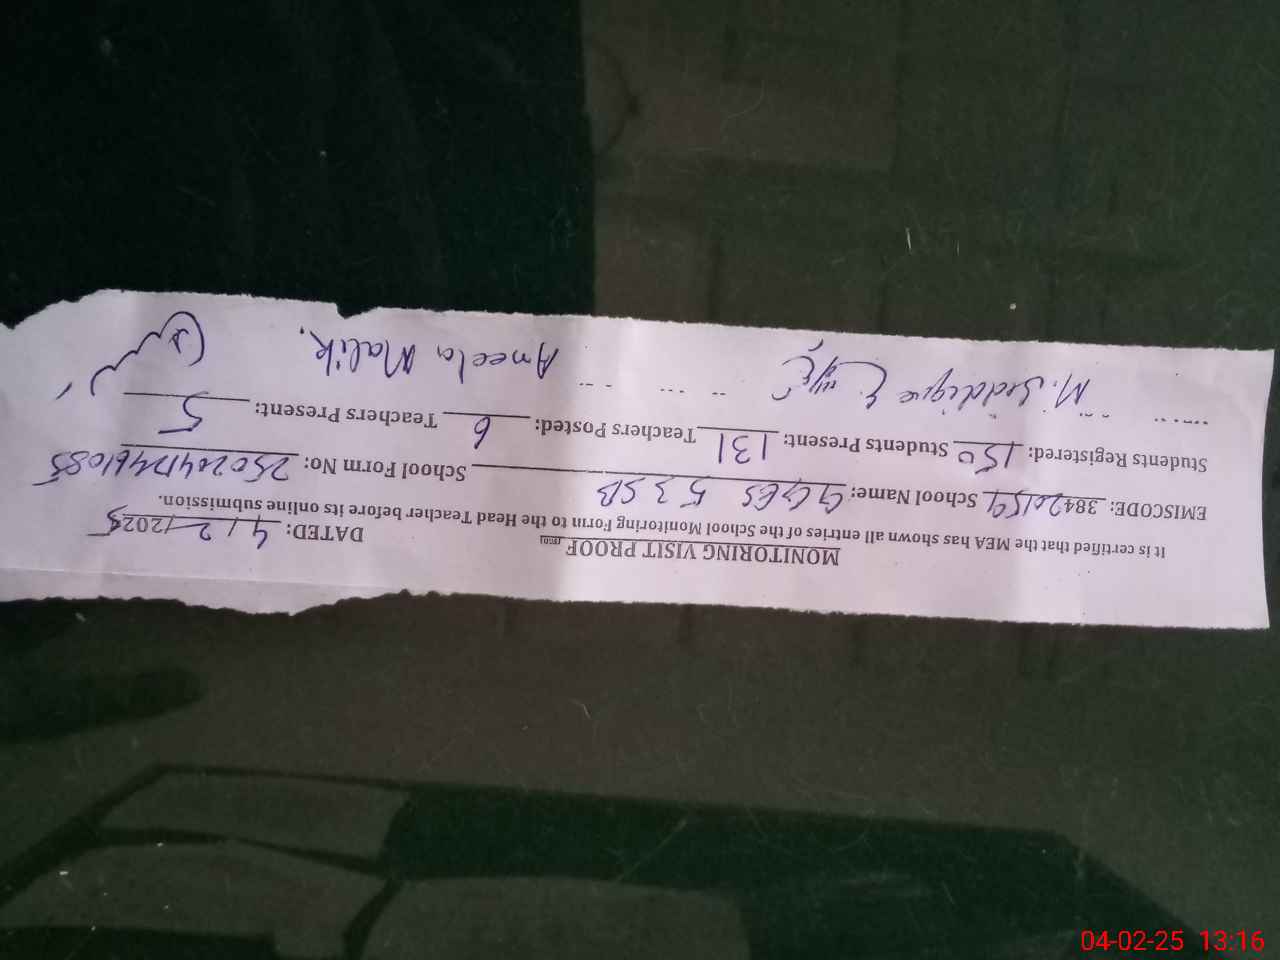 MONITORING VISIT PROOF
DATED: 4/2/2025
It is certified that the MEA has shown all entries of the School Monitoring Form to the Head Teacher before its online submission.
EMISCODE: 38420159 School Name: GGES 53 SB School Form No: 250204174461085
Students Registered: 150 Students Present: 131 Teachers Posted: 6 Teachers Present: 5
M. Siddique Aneela Malik.
04-02-25 13:16